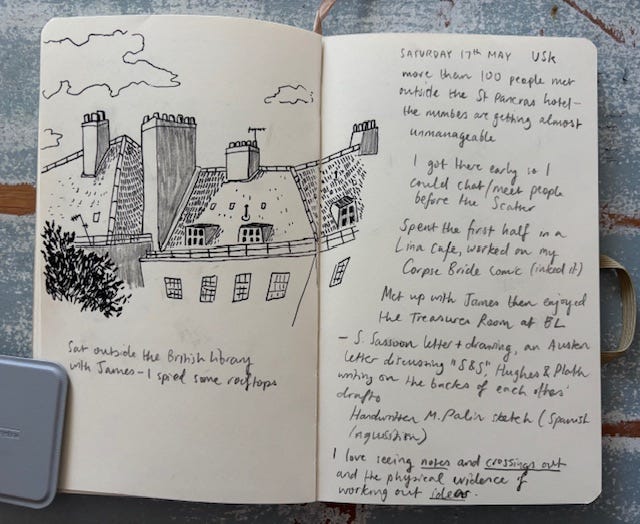 Sat outside the British Library
with James – I spied some rooftops
SATURDAY 17TH MAY USk
more than 100 people met
outside the St Pancras hotel –
the numbers are getting almost
unmanageable
I got there early so I
could chat/meet people
before the Scatter
Spent the first half in a
Lina Cafe, worked on my
Corpse Bride comic (inked it)
Met up with James then enjoyed
the Treasures Room at BL
– S. Sassoon letter + drawing, an Austen
letter discussing "S&S", Hughes & Plath
writing on the backs of each others'
drafts
Handwritten M. Palin sketch (Spanish
Inquisition)
I love seeing notes and crossings out
and the physical evidence of
working out ideas.